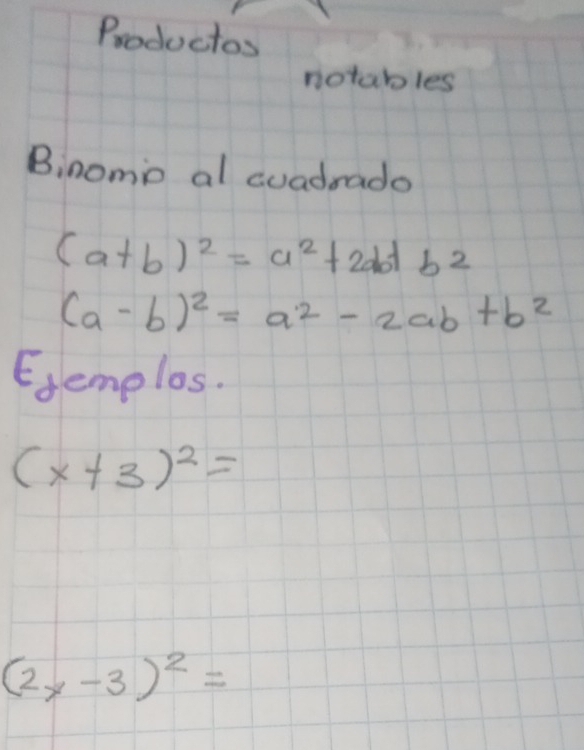 Productos
notables
Binomio al cuadrado
(a+b)² = a²+2ab+ b2
(a-b)² = a² - 2ab +b²
Ejemplos.
(x+3)² =
(2x-3)² =